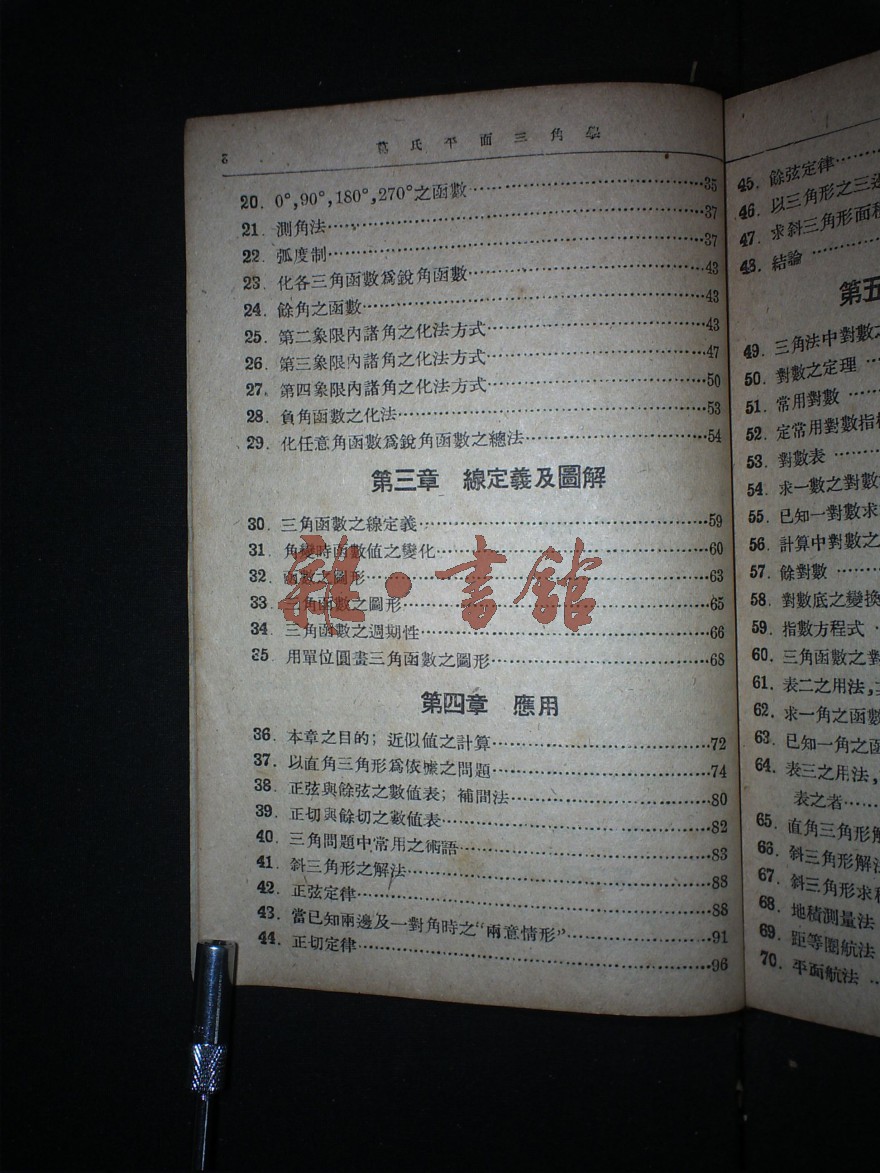 葛氏平面三角學
20. 0°,90°,180°,270°之函數…35
21. 測角法…37
22. 弧度制…37
23. 化各三角函數爲銳角函數…43
24. 餘角之函數…43
25. 第二象限內諸角之化法方式…43
26. 第三象限內諸角之化法方式…47
27. 第四象限內諸角之化法方式…50
28. 負角函數之化法…53
29. 化任意角函數爲銳角函數之總法…54
第三章 線定義及圖解
30. 三角函數之線定義…59
31. 角變時函數值之變化…60
32. 函數之圖形…63
33. 三角函數之圖形…65
34. 三角函數之週期性…66
35. 用單位圓畫三角函數之圖形…68
第四章 應用
36. 本章之目的；近似值之計算…72
37. 以直角三角形爲依據之問題…74
38. 正弦與餘弦之數值表；補間法…80
39. 正切與餘切之數值表…82
40. 三角問題中常用之術語…83
41. 斜三角形之解法…88
42. 正弦定律…88
43. 當已知兩邊及一對角時之“兩意情形”…91
44. 正切定律…96
雜·書館
45. 餘弦定律…
46. 以三角形之三邊
47. 求斜三角形面積
48. 結論…
第五
49. 三角法中對數之
50. 對數之定理…
51. 常用對數…
52. 定常用對數指標
53. 對數表…
54. 求一數之對數
55. 已知一對數求
56. 計算中對數之
57. 餘對數…
58. 對數底之變換
59. 指數方程式…
60. 三角函數之對
61. 表二之用法，
62. 求一角之函數
63. 已知一角之函
64. 表三之用法，
表之者…
65. 直角三角形解
66. 斜三角形解法
67. 斜三角形求積
68. 地積測量法
69. 距等圈航法
70. 平面航法…